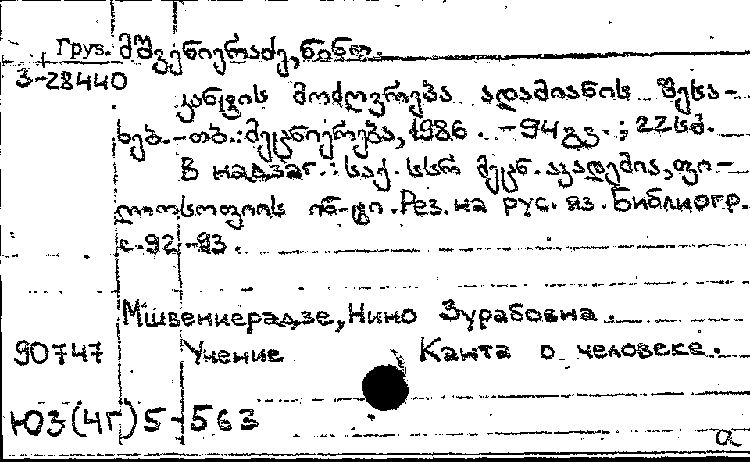 Груз. მშვენიერაძე, ნინო.
3-28440
კანტის მოძღვრება ადამიანის შესა-
ხებ. - თბ.: მეცნიერება, 1986. - 94 გვ.; 22 სმ.
В надзаг.: საქ. სსრ მეცნ. აკადემია, ფი-
ლოსოფიის ინ-ტი. Рез. на рус. яз. Библиогр.
с. 92-93.
Мшвениерадзе, Нино Зурабовна.
90747 Учение Канта о человеке.
Ю3(4Г)5-563
a